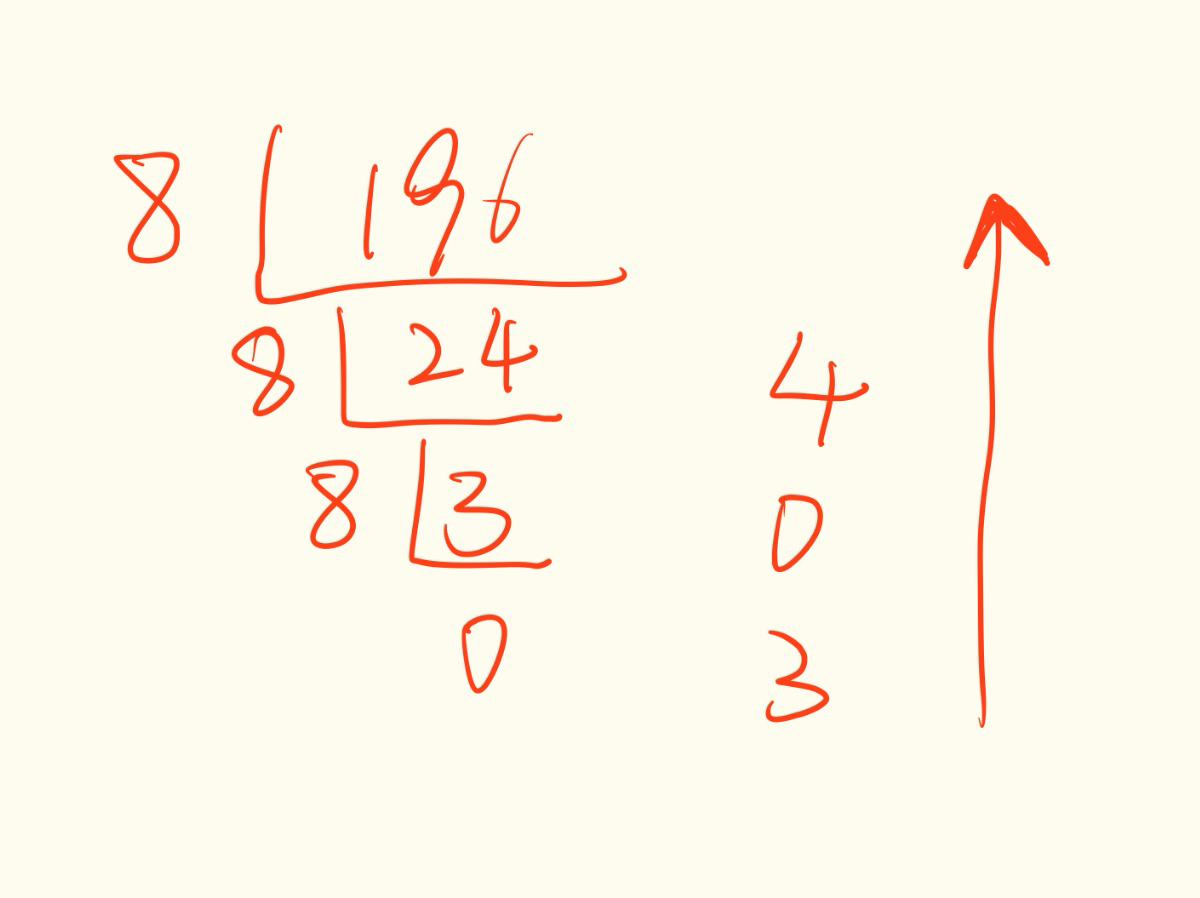 8 196
8 24 4
8 3 0
0 3